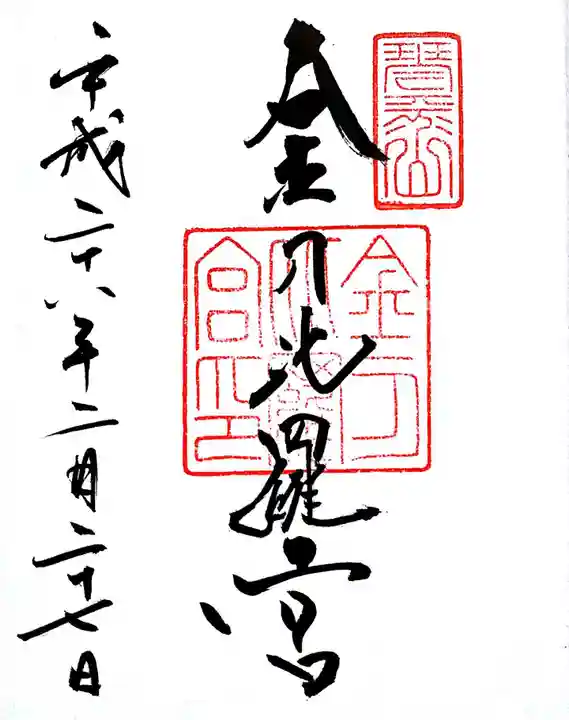 琴平山
金刀比羅宮
金刀比羅宮印
平成二十八年二月二十七日